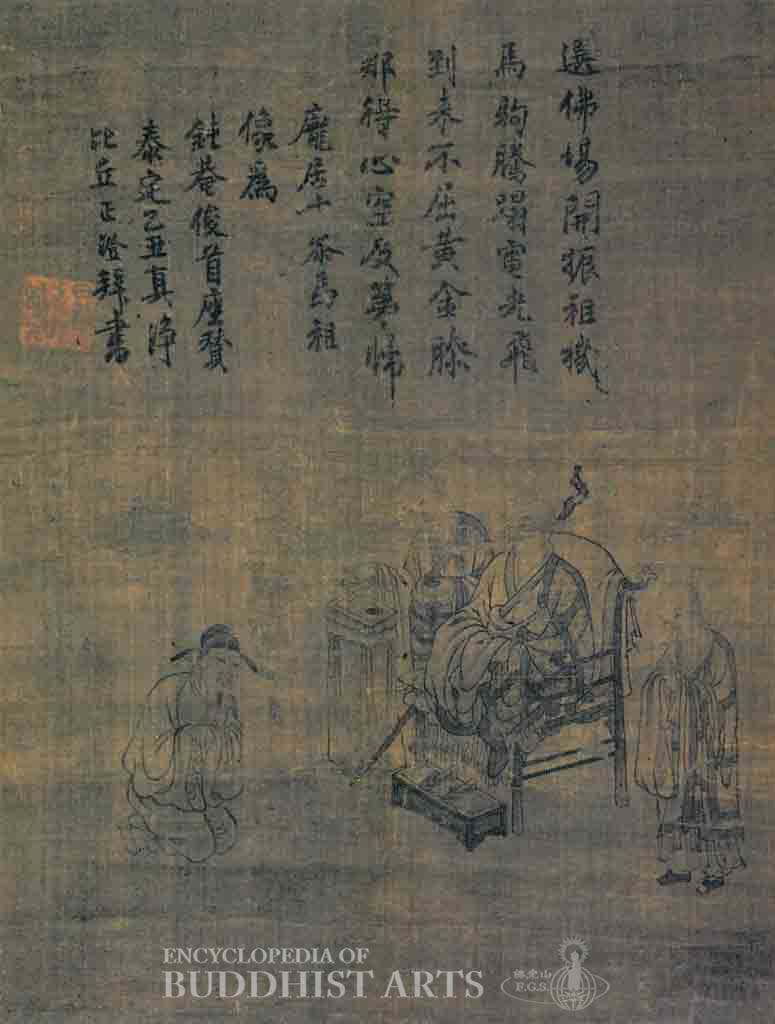 選佛場開振祖機
馬駒騰蹋電光飛
到来不屈黄金膝
那得心空及第歸
龐居士参馬祖
像為
鈍菴俊首座賛
泰定乙丑真浄
比丘正澄拜書
ENCYCLOPEDIA OF
BUDDHIST ARTS
佛光山
F.G.S.